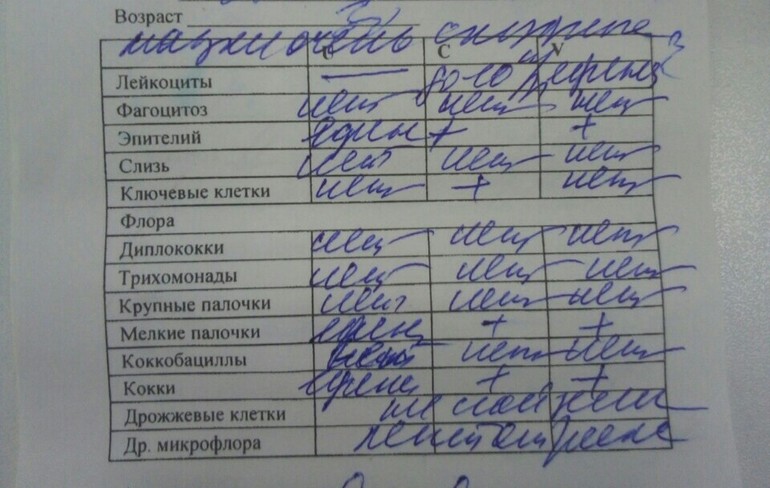 Возраст
мазки очень скудные
U C V
Лейкоциты — до 10
Фагоцитоз нет нет нет
Эпителий един + +
Слизь нет нет нет
Ключевые клетки нет + нет
Флора
Диплококки нет нет нет
Трихомонады нет нет нет
Крупные палочки нет нет нет
Мелкие палочки един + +
Коккобациллы нет нет нет
Кокки един + +
Дрожжевые клетки
Др. микрофлора лептотрикс